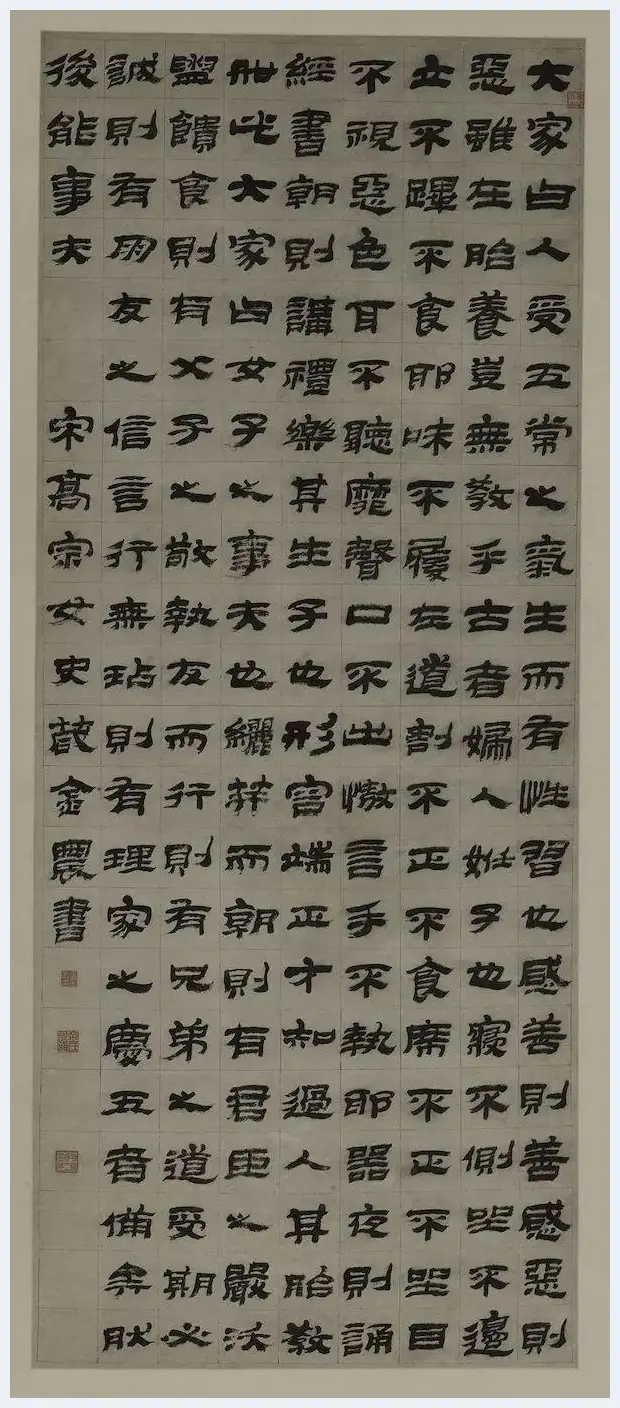 大家曰人受五常之氣生而有性習也感善則善感惡則
惡雖在胎養豈無教乎古者婦人妊子也寢不側坐不邊
立不蹕不食耶味不履左道割不正不食席不正不坐目
不視惡色耳不聽靡聲口不出慠言手不執耶器夜則誦
經書朝則講禮樂其生子也形容端正才知過人其胎教
如此大家曰女子之事夫也纚笄而朝則有君臣之嚴沃
盥饋食則有父子之敬執友而行則有兄弟之道受期必
誠則有朋友之信言行無玷則有理家之慶五者備矣然
後能事夫 宋高宗女史箴金農書